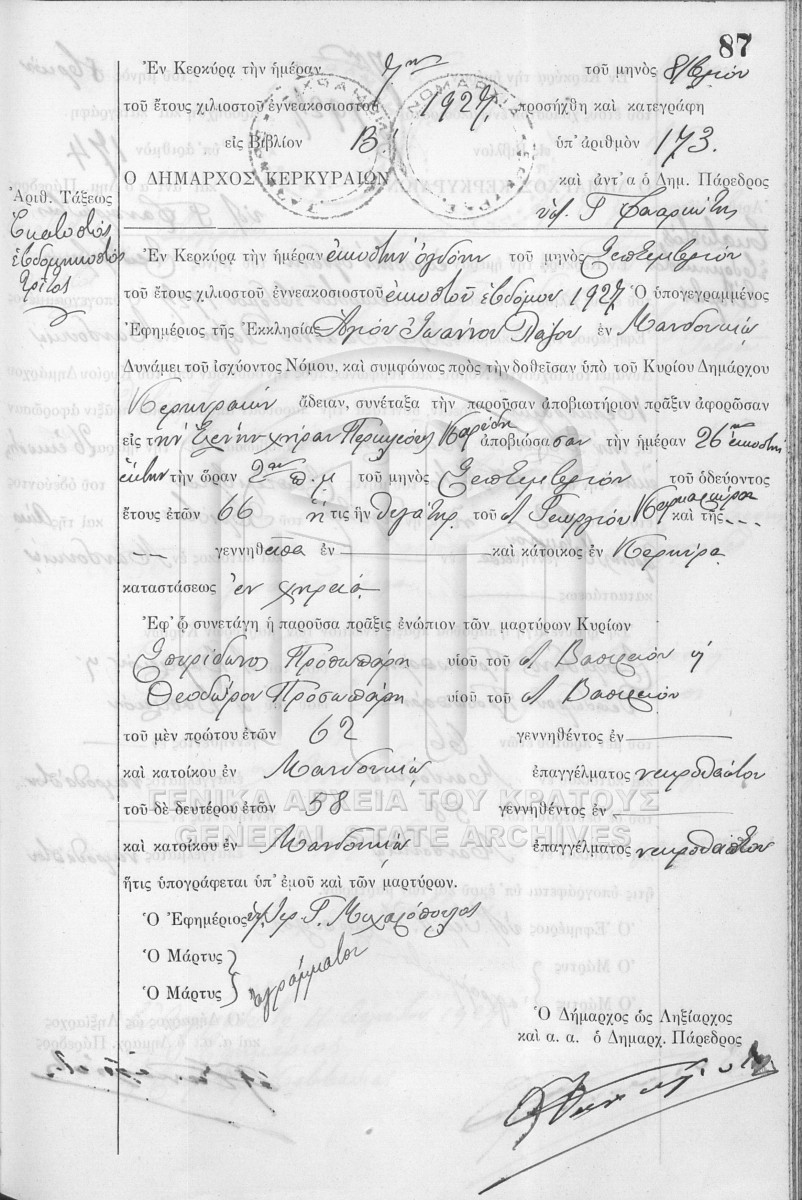 87
Ἐν Κερκύρᾳ τὴν ἡμέραν 7ην τοῦ μηνὸς 8/βρίου
τοῦ ἔτους χιλιοστοῦ ἐννεακοσιοστοῦ 1927, προσήχθη καὶ κατεγράφη
εἰς Βιβλίον Β! ὑπ' ἀριθμὸν 173.
Ὁ ΔΗΜΑΡΧΟΣ ΚΕΡΚΥΡΑΙΩΝ καὶ ἀντ' α ὁ Δημ. Πάρεδρος
Ἀριθ. Τάξεως
Ἑκατοστός
ἑβδομηκοστός
τρίτος
Ἐν Κερκύρᾳ τὴν ἡμέραν εἰκοστὴν ὀγδόην τοῦ μηνὸς Σεπτεμβρίου
τοῦ ἔτους χιλιοστοῦ ἐννεακοσιοστοῦ εἰκοστοῦ ἑβδόμου 1927 Ὁ ὑπογεγραμμένος
Ἐφημέριος τῆς Ἐκκλησίας Ἁγίου Ἰωάννου Λάζου ἐν Μανδουκίῳ
Δυνάμει τοῦ ἰσχύοντος Νόμου, καὶ συμφώνως πρὸς τὴν δοθεῖσαν ὑπὸ τοῦ Κυρίου Δημάρχου
Κερκυραίων ἄδειαν, συνέταξα τὴν παροῦσαν ἀποβιωτήριον πρᾶξιν ἀφορῶσαν
εἰς τὴν Ἑλένην χήραν Περικλέους ἀποβιώσασαν τὴν ἡμέραν 26ην εἰκοστὴν
ἕκτην τὴν ὥραν 2αν π.μ τοῦ μηνὸς Σεπτεμβρίου τοῦ ὁδεύοντος
ἔτους ἐτῶν 66 ἥτις ἦν θυγάτηρ τοῦ Λ Γεωργίου καὶ τῆς
γεννηθεῖσα ἐν καὶ κάτοικος ἐν Κερκύρᾳ
καταστάσεως ἐν χηρείᾳ
Ἐφ' ᾧ συνετάγη ἡ παροῦσα πρᾶξις ἐνώπιον τῶν μαρτύρων Κυρίων
Σπυρίδωνος Προσωπάρη υἱοῦ τοῦ Λ Βασιλείου ἢ
Θεοδώρου Προσωπάρη υἱοῦ τοῦ Λ Βασιλείου
τοῦ μὲν πρώτου ἐτῶν 62 γεννηθέντος ἐν
καὶ κατοίκου ἐν Μανδουκίῳ ἐπαγγέλματος νεκροθάπτου
ΓΕΝΙΚΑ ΑΡΧΕΙΑ ΤΟΥ ΚΡΑΤΟΥΣ
τοῦ δὲ δευτέρου ἐτῶν 58 γεννηθέντος ἐν
GENERAL STATE ARCHIVES
καὶ κατοίκου ἐν Μανδουκίῳ ἐπαγγέλματος νεκροθάπτου
ἥτις ὑπογράφεται ὑπ' ἐμοῦ καὶ τῶν μαρτύρων.
Ὁ Ἐφημέριος Ἱερ. Γ. Μιχαλόπουλος
Ὁ Μάρτυς
Ὁ Μάρτυς ἀγράμματοι
Ὁ Δήμαρχος ὡς Ληξίαρχος
καὶ α. α. ὁ Δημαρχ. Πάρεδρος